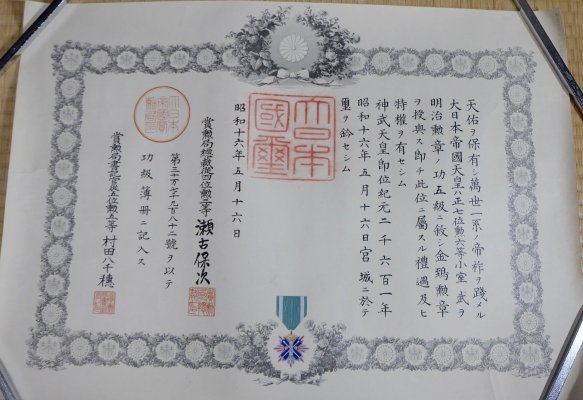 天佑ヲ保有シ萬世一系ノ帝祚ヲ踐メル
大日本帝國天皇ハ正七位勳六等小室武ヲ
明治勲章ノ功五級ニ敘シ金鵄勲章
ヲ授與ス即チ此位ニ屬スル禮遇及ヒ
特權ヲ有セシム
神武天皇即位紀元二千六百一年
昭和十六年五月十六日宮城ニ於テ
璽ヲ鈐セシム
大日本
國璽
昭和十六年五月十六日
賞勲局總裁從四位勲三等 瀬古保次
第三十万二千九百八十二號ヲ以テ
功級簿冊ニ記入ス
賞勲局書記官從五位勲五等 村田八千穗